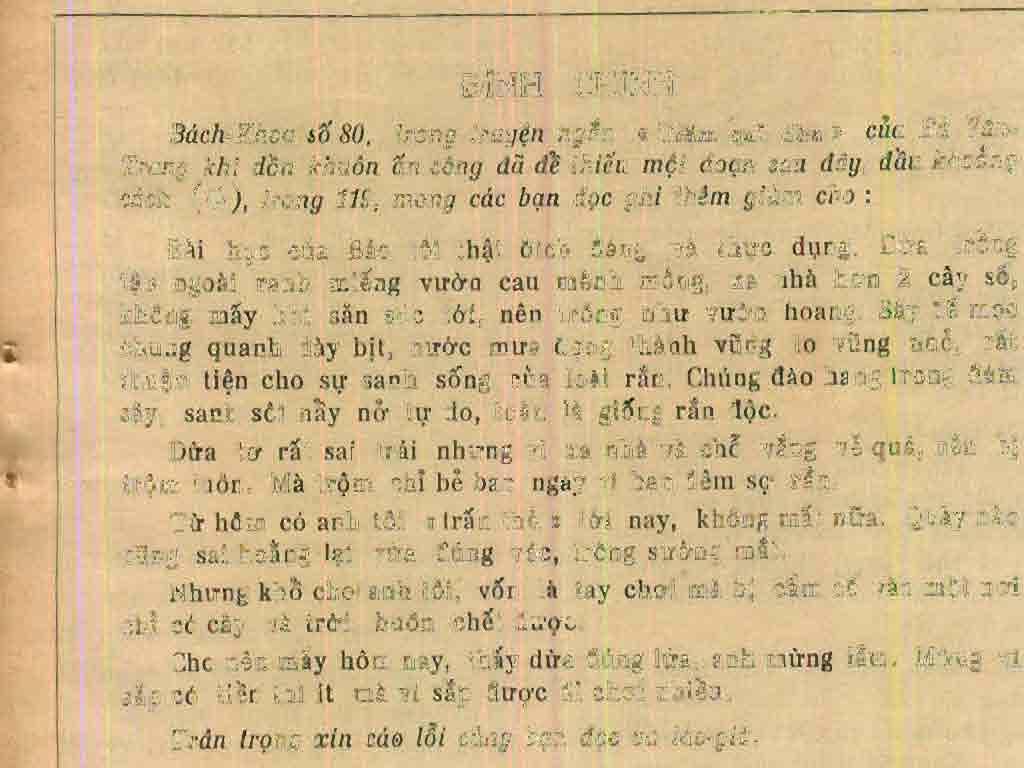 ĐÍNH CHÍNH
Bách-Khoa số 80, trong truyện ngắn « Trăm quí thu » của Lê Văn-
Trang khi dồn khuôn ấn công đã để thiếu một đoạn sau đây, đầu khoảng
cách trang 119, mong các bạn đọc ghi thêm giùm cho :
Bài học của Bác tôi thật đích đáng và thực dụng. Dừa trồng
tận ngoài ranh miếng vườn cau mênh mông, xa nhà hơn 2 cây số,
không mấy khi săn sóc tới, nên trông như vườn hoang. Sậy đế mọc
chung quanh dày bịt, nước mưa đọng thành vũng to vũng nhỏ, rất
thuận tiện cho sự sanh sống của loài rắn. Chúng đào hang trong đám
sậy, sanh sôi nẩy nở tự do, toàn là giống rắn độc.
Dừa tơ rất sai trái nhưng vì xa nhà và chỗ vắng vẻ quá, nên bị
trộm luôn. Mà trộm chỉ bẻ ban ngày vì ban đêm sợ rắn.
Từ hôm có anh tôi « trấn thủ » tới nay, không mất nữa. Quày nào
cũng sai hoằng lại vừa đúng vóc, trông sướng mắt.
Nhưng khổ cho anh tôi, vốn là tay chơi mà bị cầm cố vào một nơi
chỉ có cây và trời, buồn chết được.
Cho nên mấy hôm nay, thấy dừa đúng lứa, anh mừng lắm. Mừng vì
sắp có tiền thì ít mà vì sắp được đi chơi nhiều.
Trân trọng xin cáo lỗi cùng bạn đọc và tác-giả.